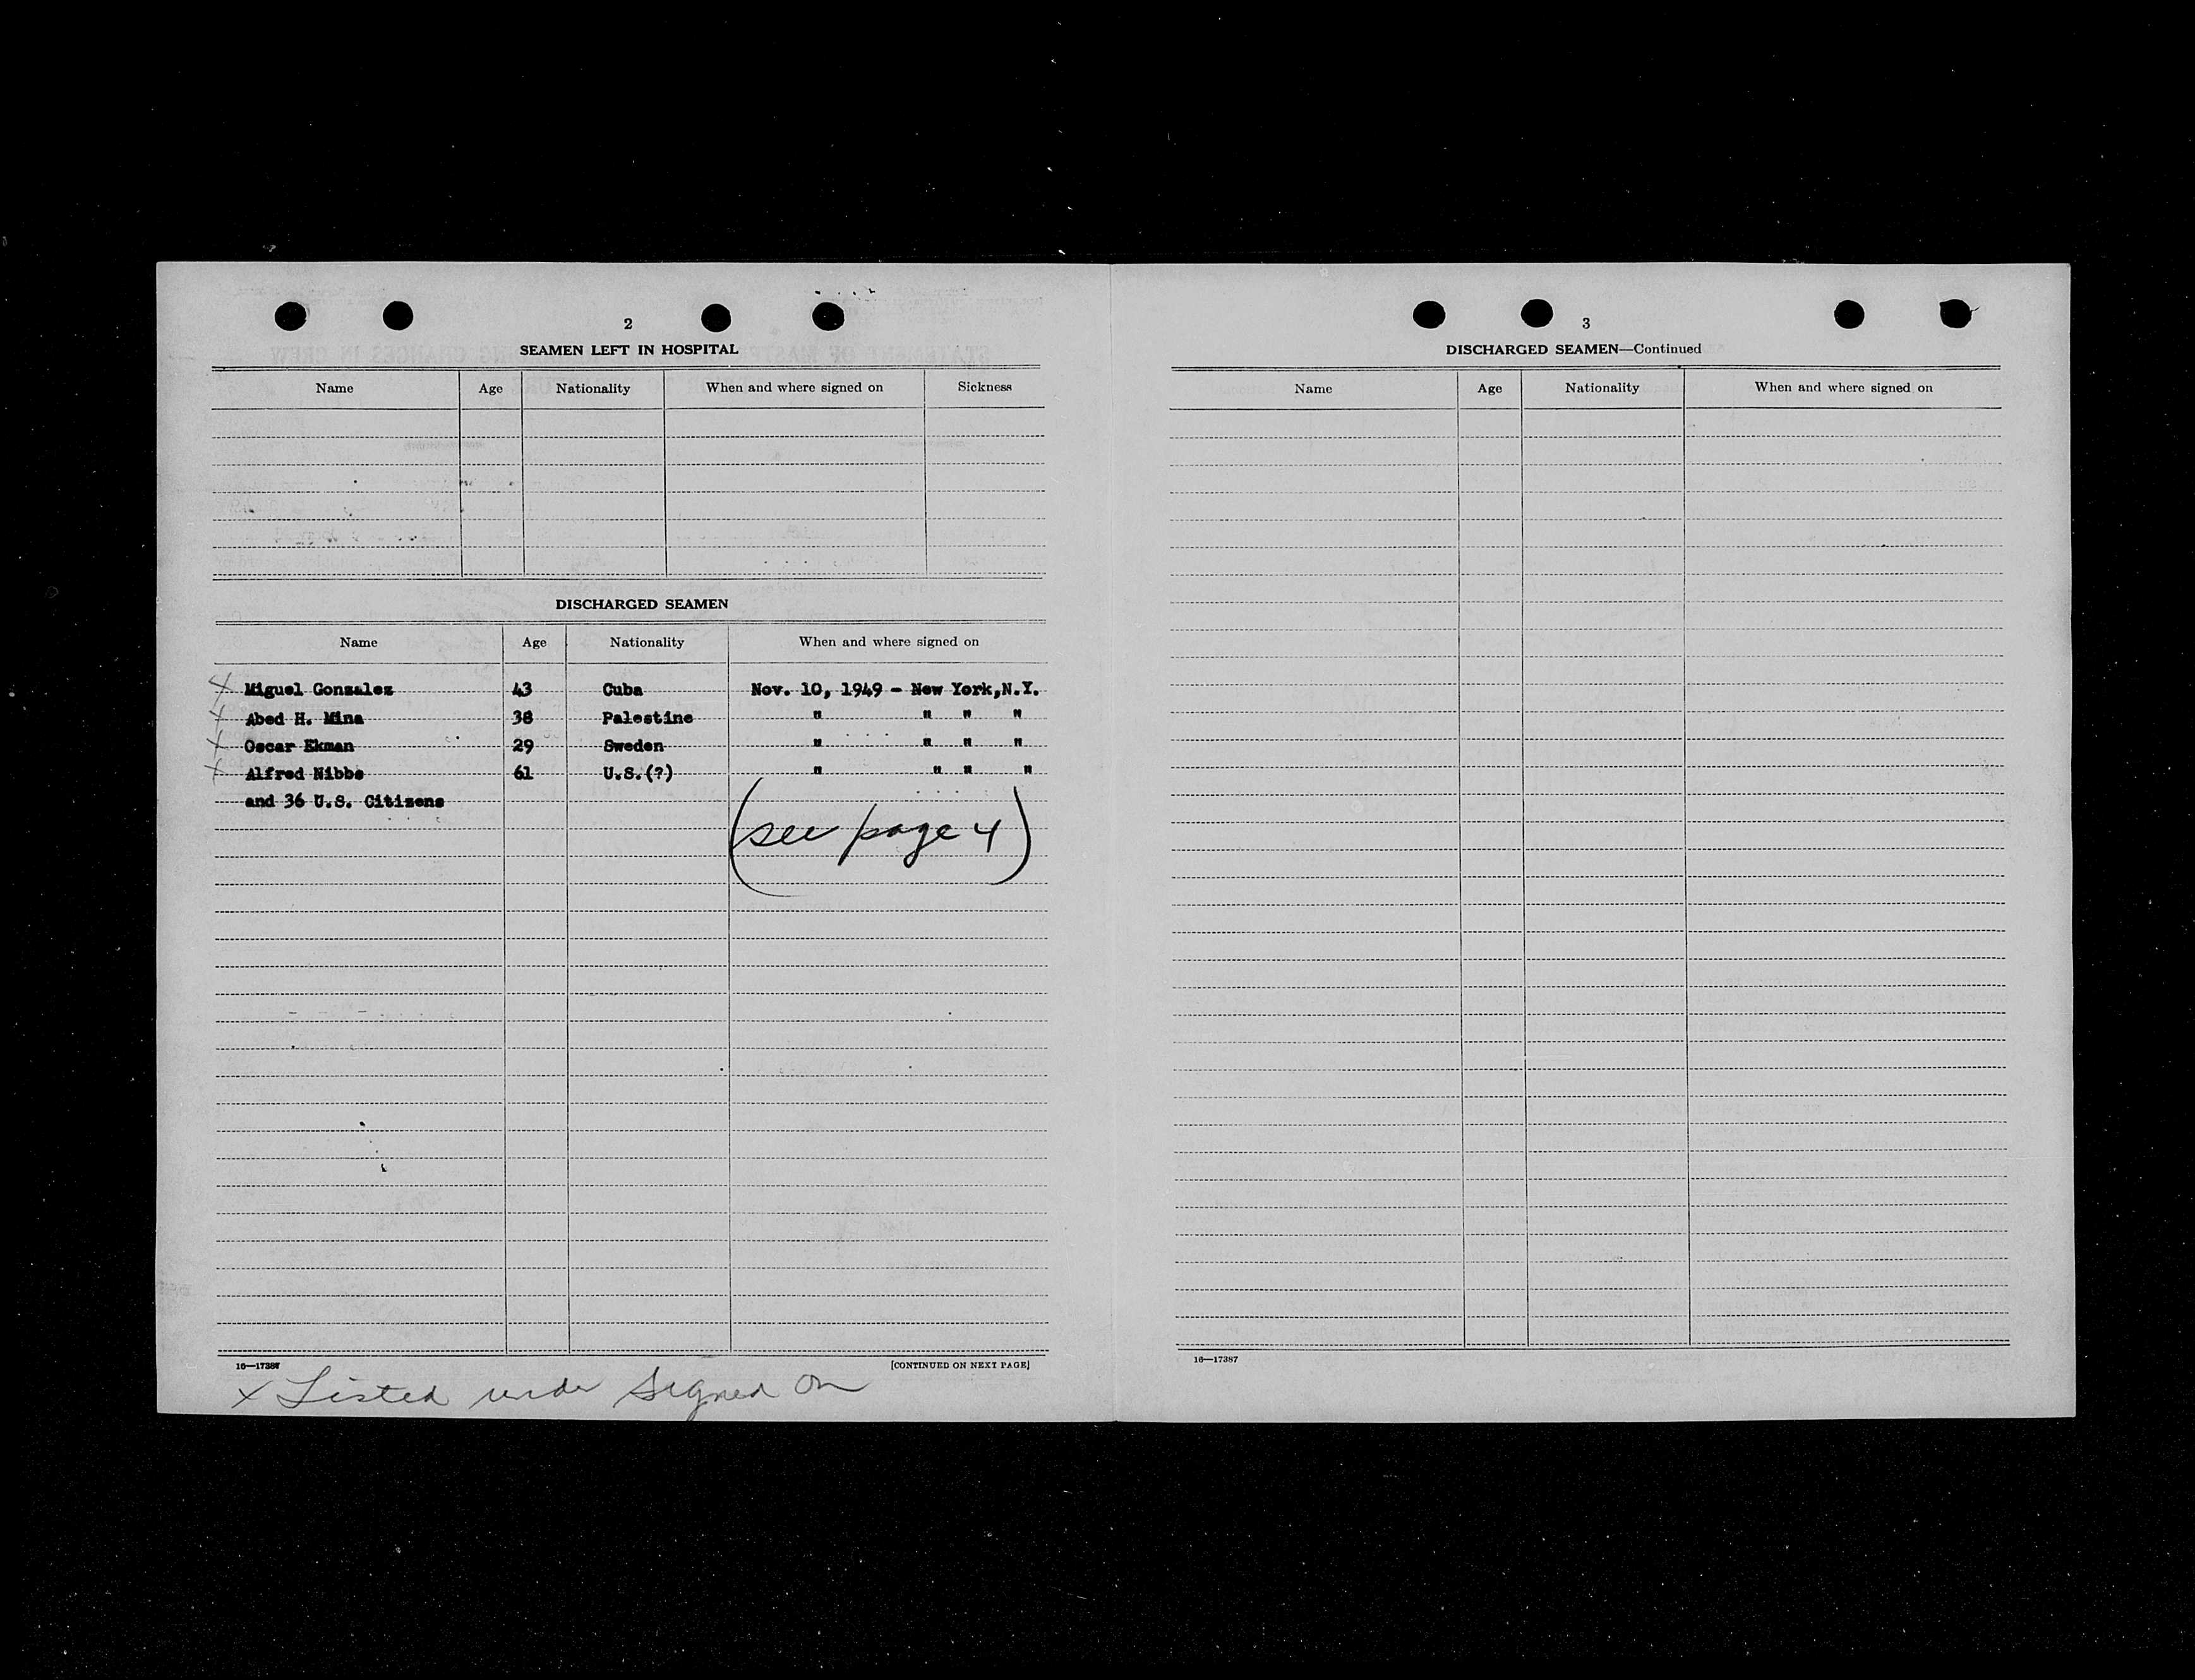 2
SEAMEN LEFT IN HOSPITAL
Name Age Nationality When and where signed on Sickness
DISCHARGED SEAMEN
Name Age Nationality When and where signed on
X Miguel Gonzalez 43 Cuba Nov. 10, 1949 - New York,N.Y.
X Abed H. Mina 38 Palestine " " " "
X Oscar Ekman 29 Sweden " " " "
X Alfred Nibbe 61 U.S.(?) " " " "
and 36 U.S. Citizens
(see page 4)
16—17387 [CONTINUED ON NEXT PAGE]
x Listed under Signed on
3
DISCHARGED SEAMEN—Continued
Name Age Nationality When and where signed on
16—17387